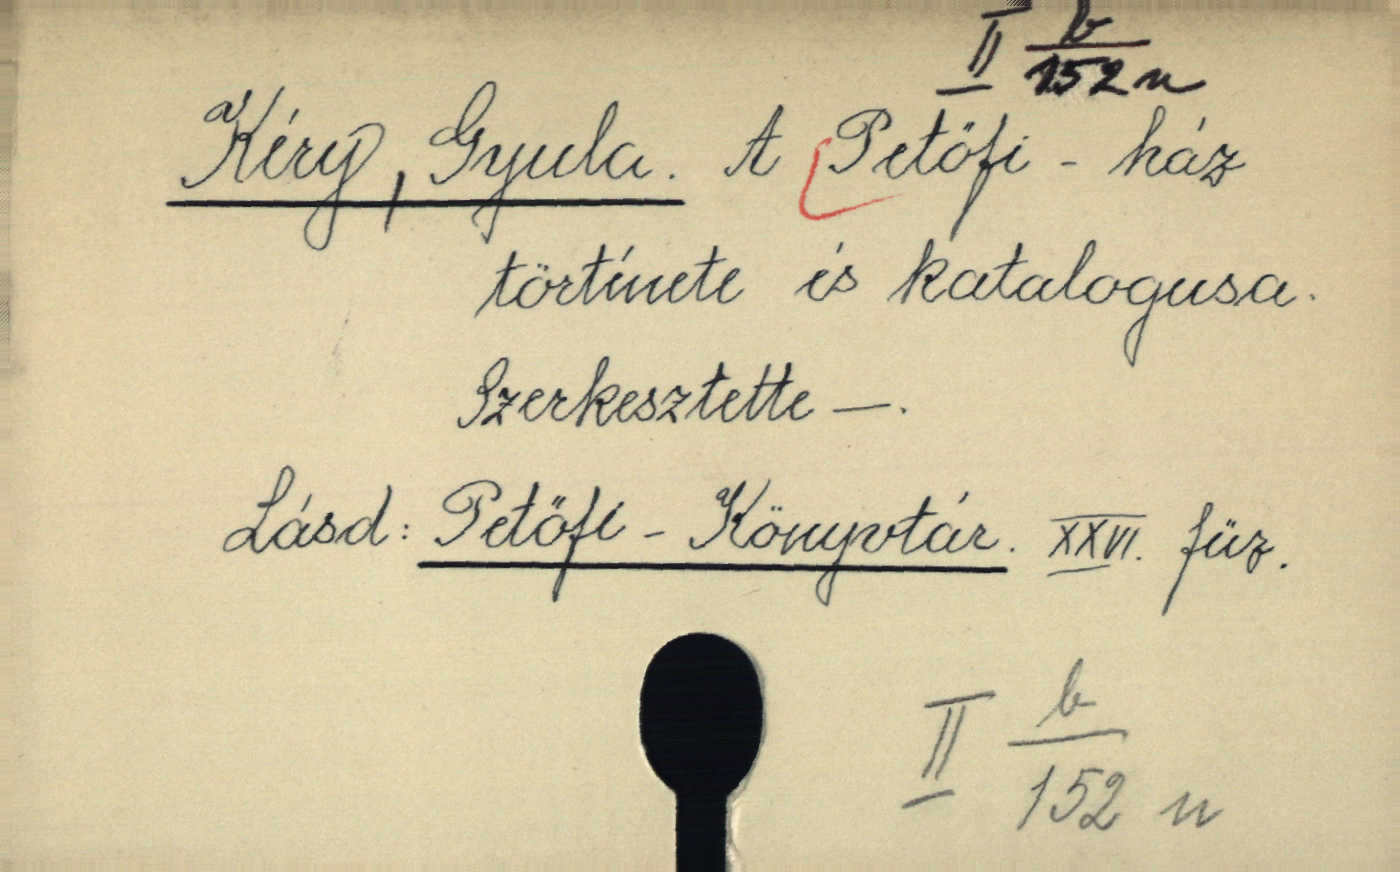 II b
152 u
Kéry, Gyula. A Petőfi - ház
története és katalogusa.
Szerkesztette —.
Lásd: Petőfi - Könyvtár. XXVI. füz.
II b
152 u